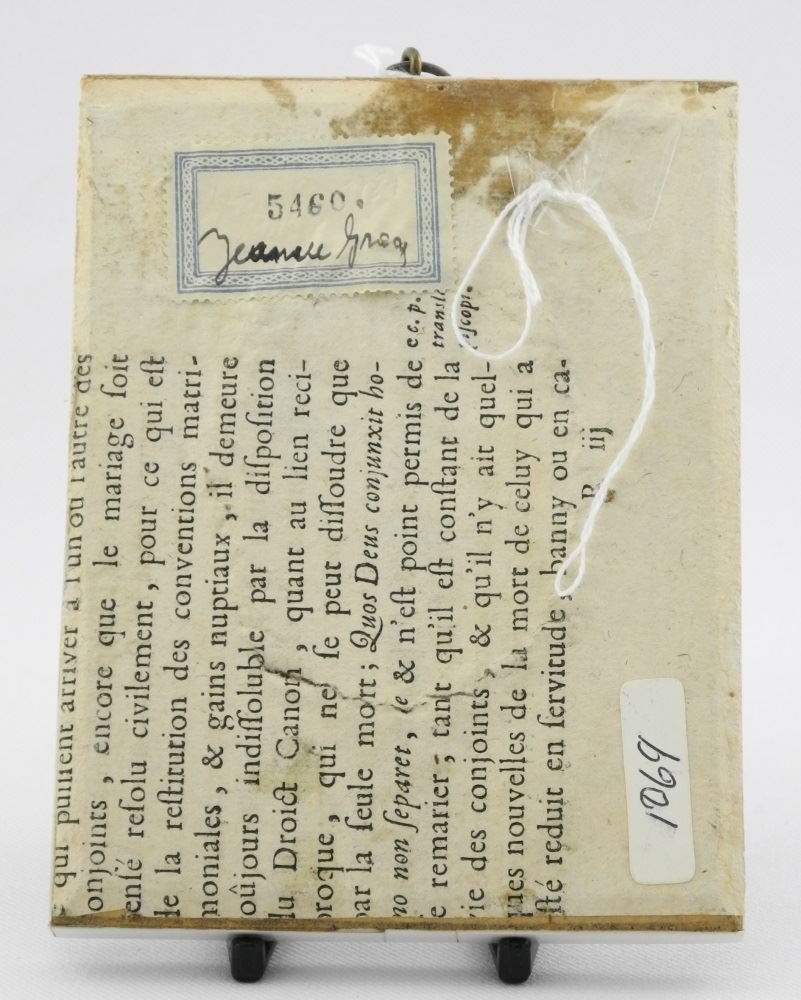 5460.
Jeanne Gray
qui puiſſent arriver à l'un ou l'autre des
onjoints, encore que le mariage ſoit
enſé reſolu civilement, pour ce qui eſt
le la reſtitution des conventions matri-
moniales, & gains nuptiaux, il demeure
oûjours indiſſoluble par la diſpoſition
lu Droict Canon, quant au lien reci-
proque, qui ne ſe peut diſſoudre que
par la ſeule mort; Quos Deus conjunxit ho-
no non ſeparet, & n'eſt point permis de
e remarier, tant qu'il eſt conſtant de la
vie des conjoints, & qu'il n'y ait quel-
ques nouvelles de la mort de celuy qui a
ſté reduit en ſervitude, banny ou en ca-
iij
e c. p.
tranſl
iſcopi.
1069